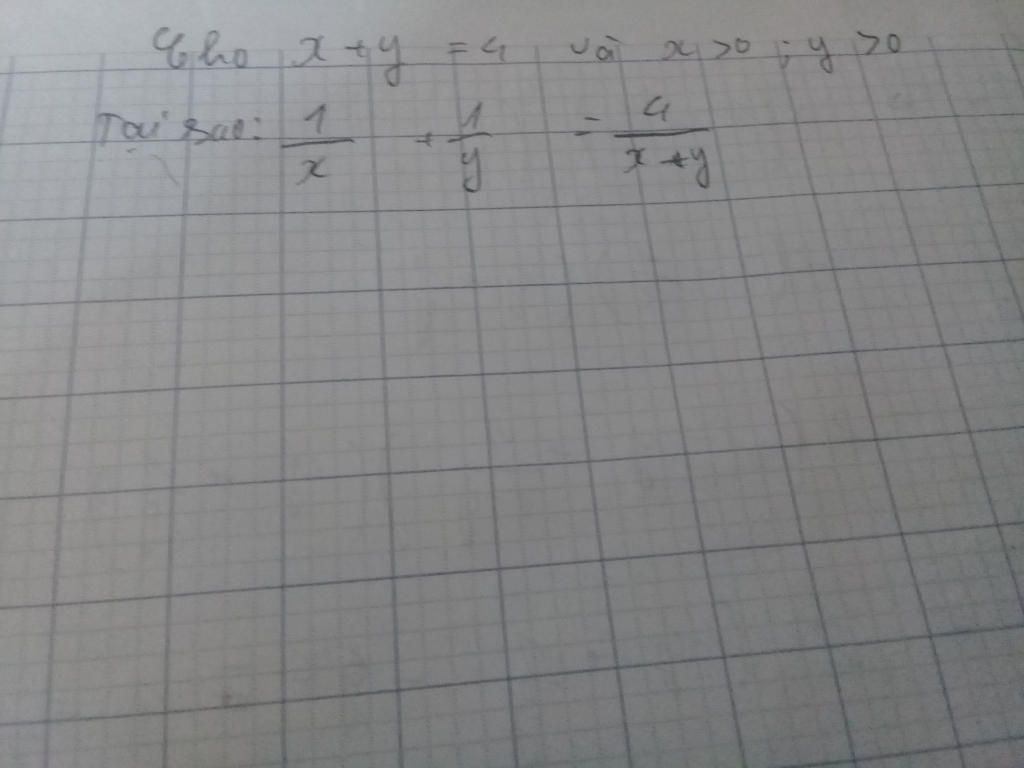 Cho x + y = 4 và x > 0 ; y > 0
Tại sao: 1/x + 1/y = 4/(x + y)